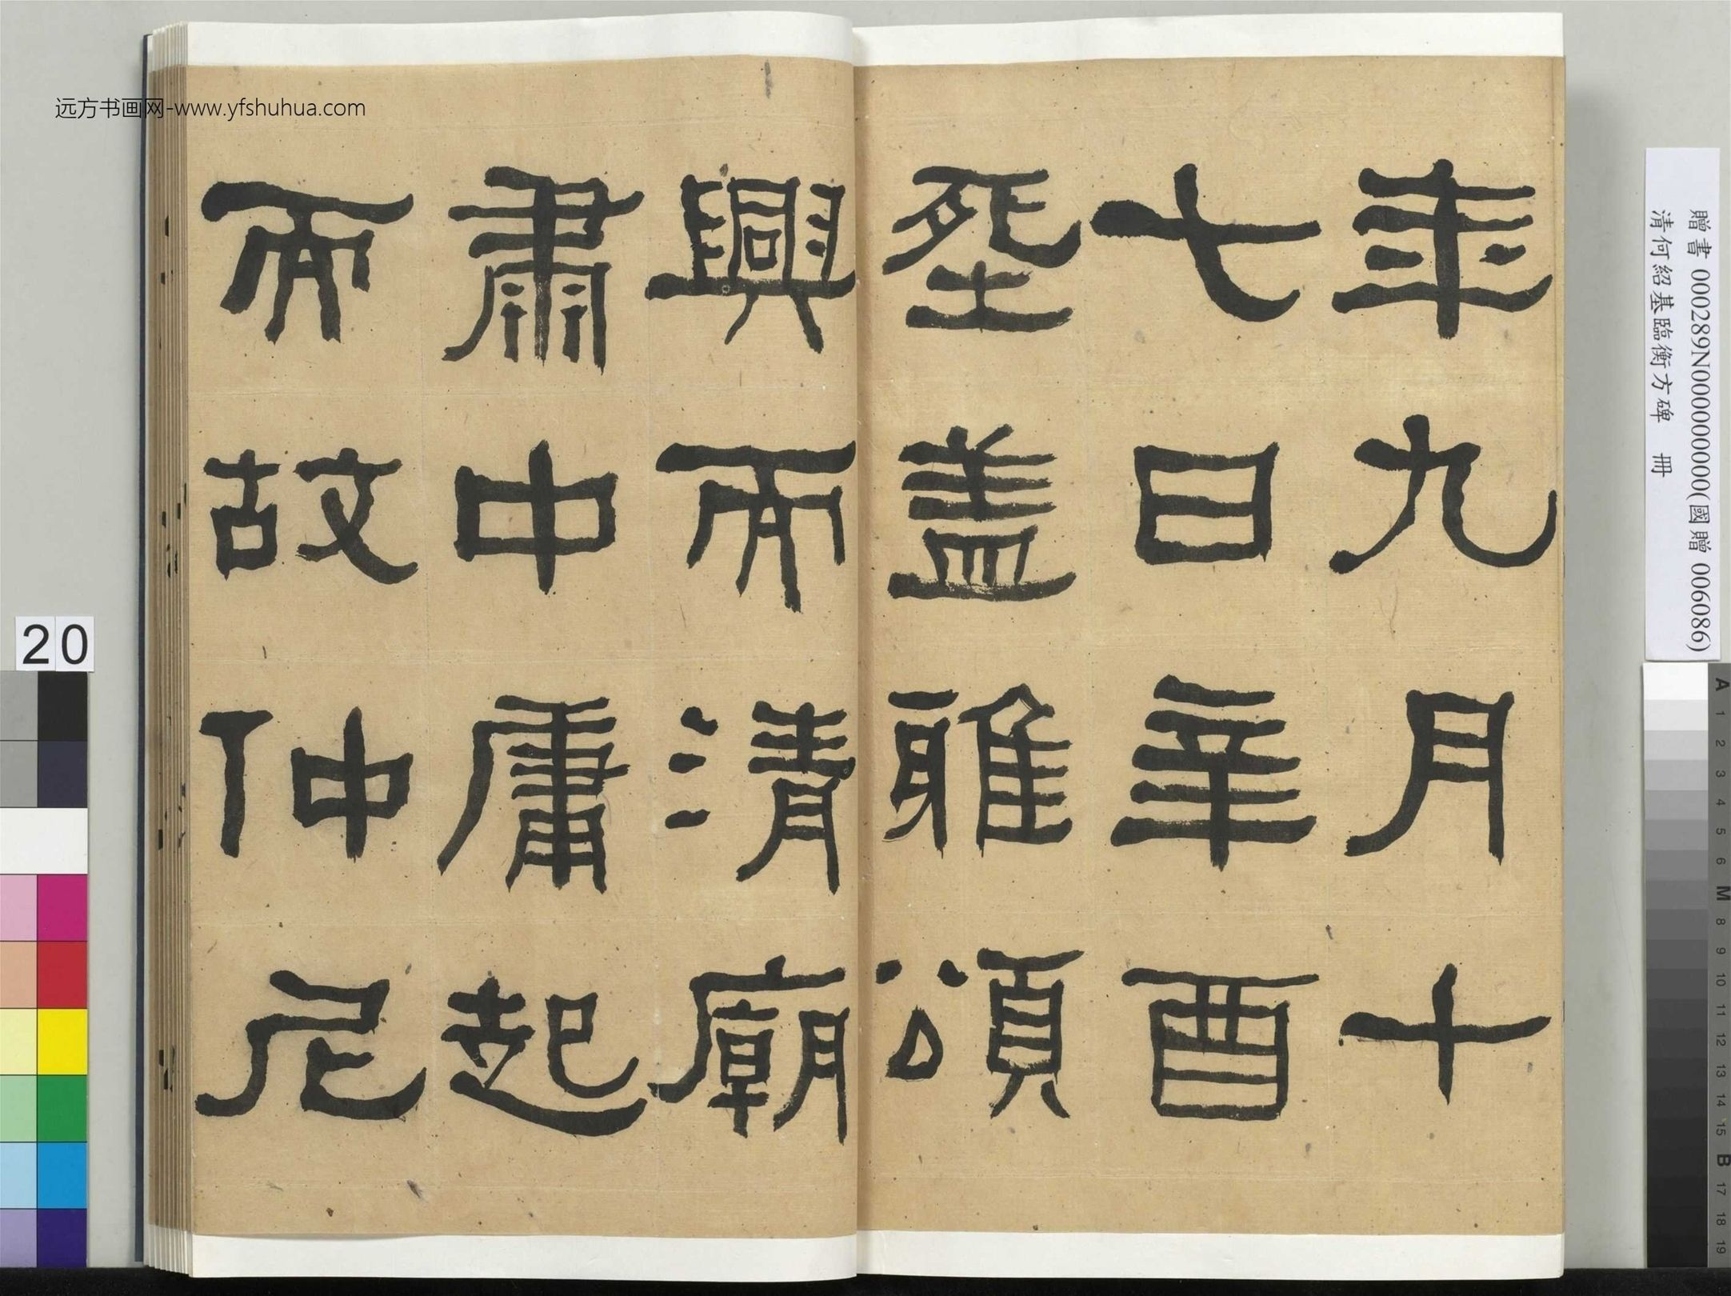 年九月十
七日辛酉
塟盖雅頌
興而清廟
肅中庸起
而故仲尼
远方书画网-www.yfshuhua.com
贈書 000289N000000000(國贈 006086)
清何紹基臨衡方碑 冊
20
A 1 2 3 4 5 6 M 8 9 10 11 12 13 14 15 B 17 18 19